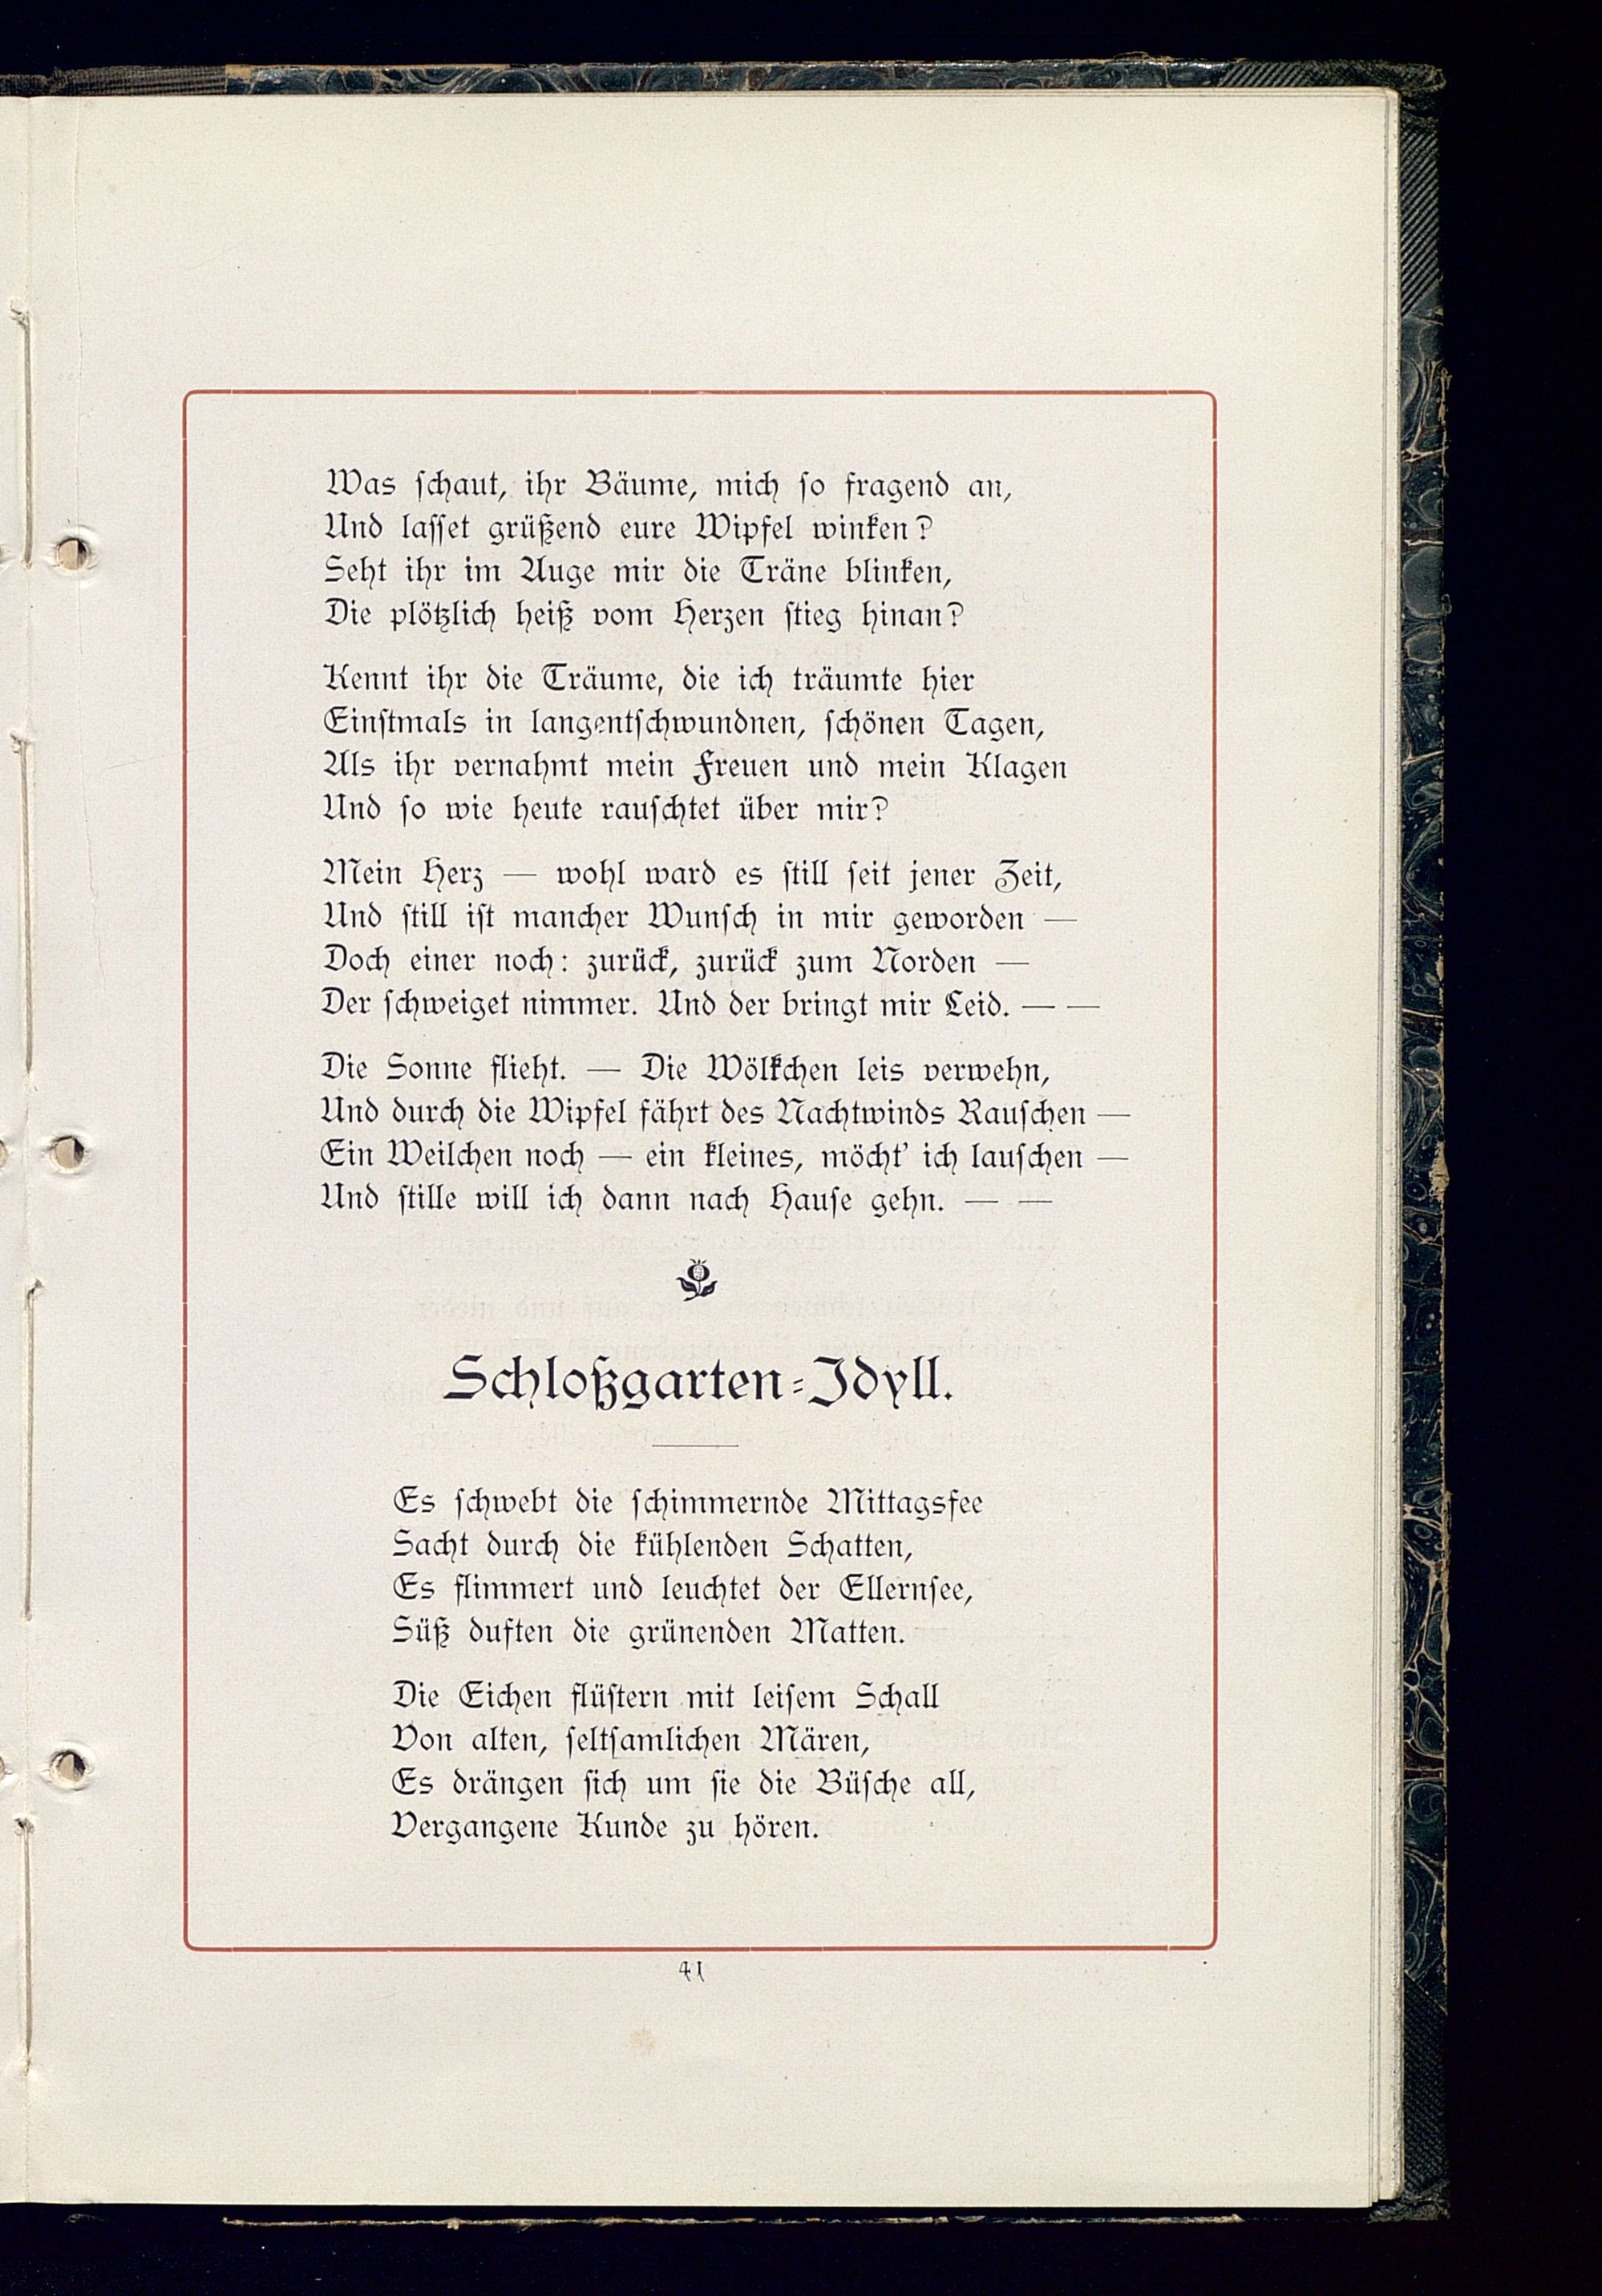 Was schaut, ihr Bäume, mich so fragend an,
Und lasset grüßend eure Wipfel winken?
Seht ihr im Auge mir die Träne blinken,
Die plötzlich heiß vom Herzen stieg hinan?
Kennt ihr die Träume, die ich träumte hier
Einstmals in langentschwundnen, schönen Tagen,
Als ihr vernahmt mein Freuen und mein Klagen
Und so wie heute rauschtet über mir?
Mein Herz — wohl ward es still seit jener Zeit,
Und still ist mancher Wunsch in mir geworden —
Doch einer noch: zurück, zurück zum Norden —
Der schweiget nimmer. Und der bringt mir Leid. — —
Die Sonne flieht. — Die Wölkchen leis verwehn,
Und durch die Wipfel fährt des Nachtwinds Rauschen —
Ein Weilchen noch — ein kleines, möcht' ich lauschen —
Und stille will ich dann nach Hause gehn. — —
Schloßgarten-Idyll.
Es schwebt die schimmernde Mittagsfee
Sacht durch die kühlenden Schatten,
Es flimmert und leuchtet der Ellernsee,
Süß duften die grünenden Matten.
Die Eichen flüstern mit leisem Schall
Von alten, seltsamlichen Mären,
Es drängen sich um sie die Büsche all,
Vergangene Kunde zu hören.
41